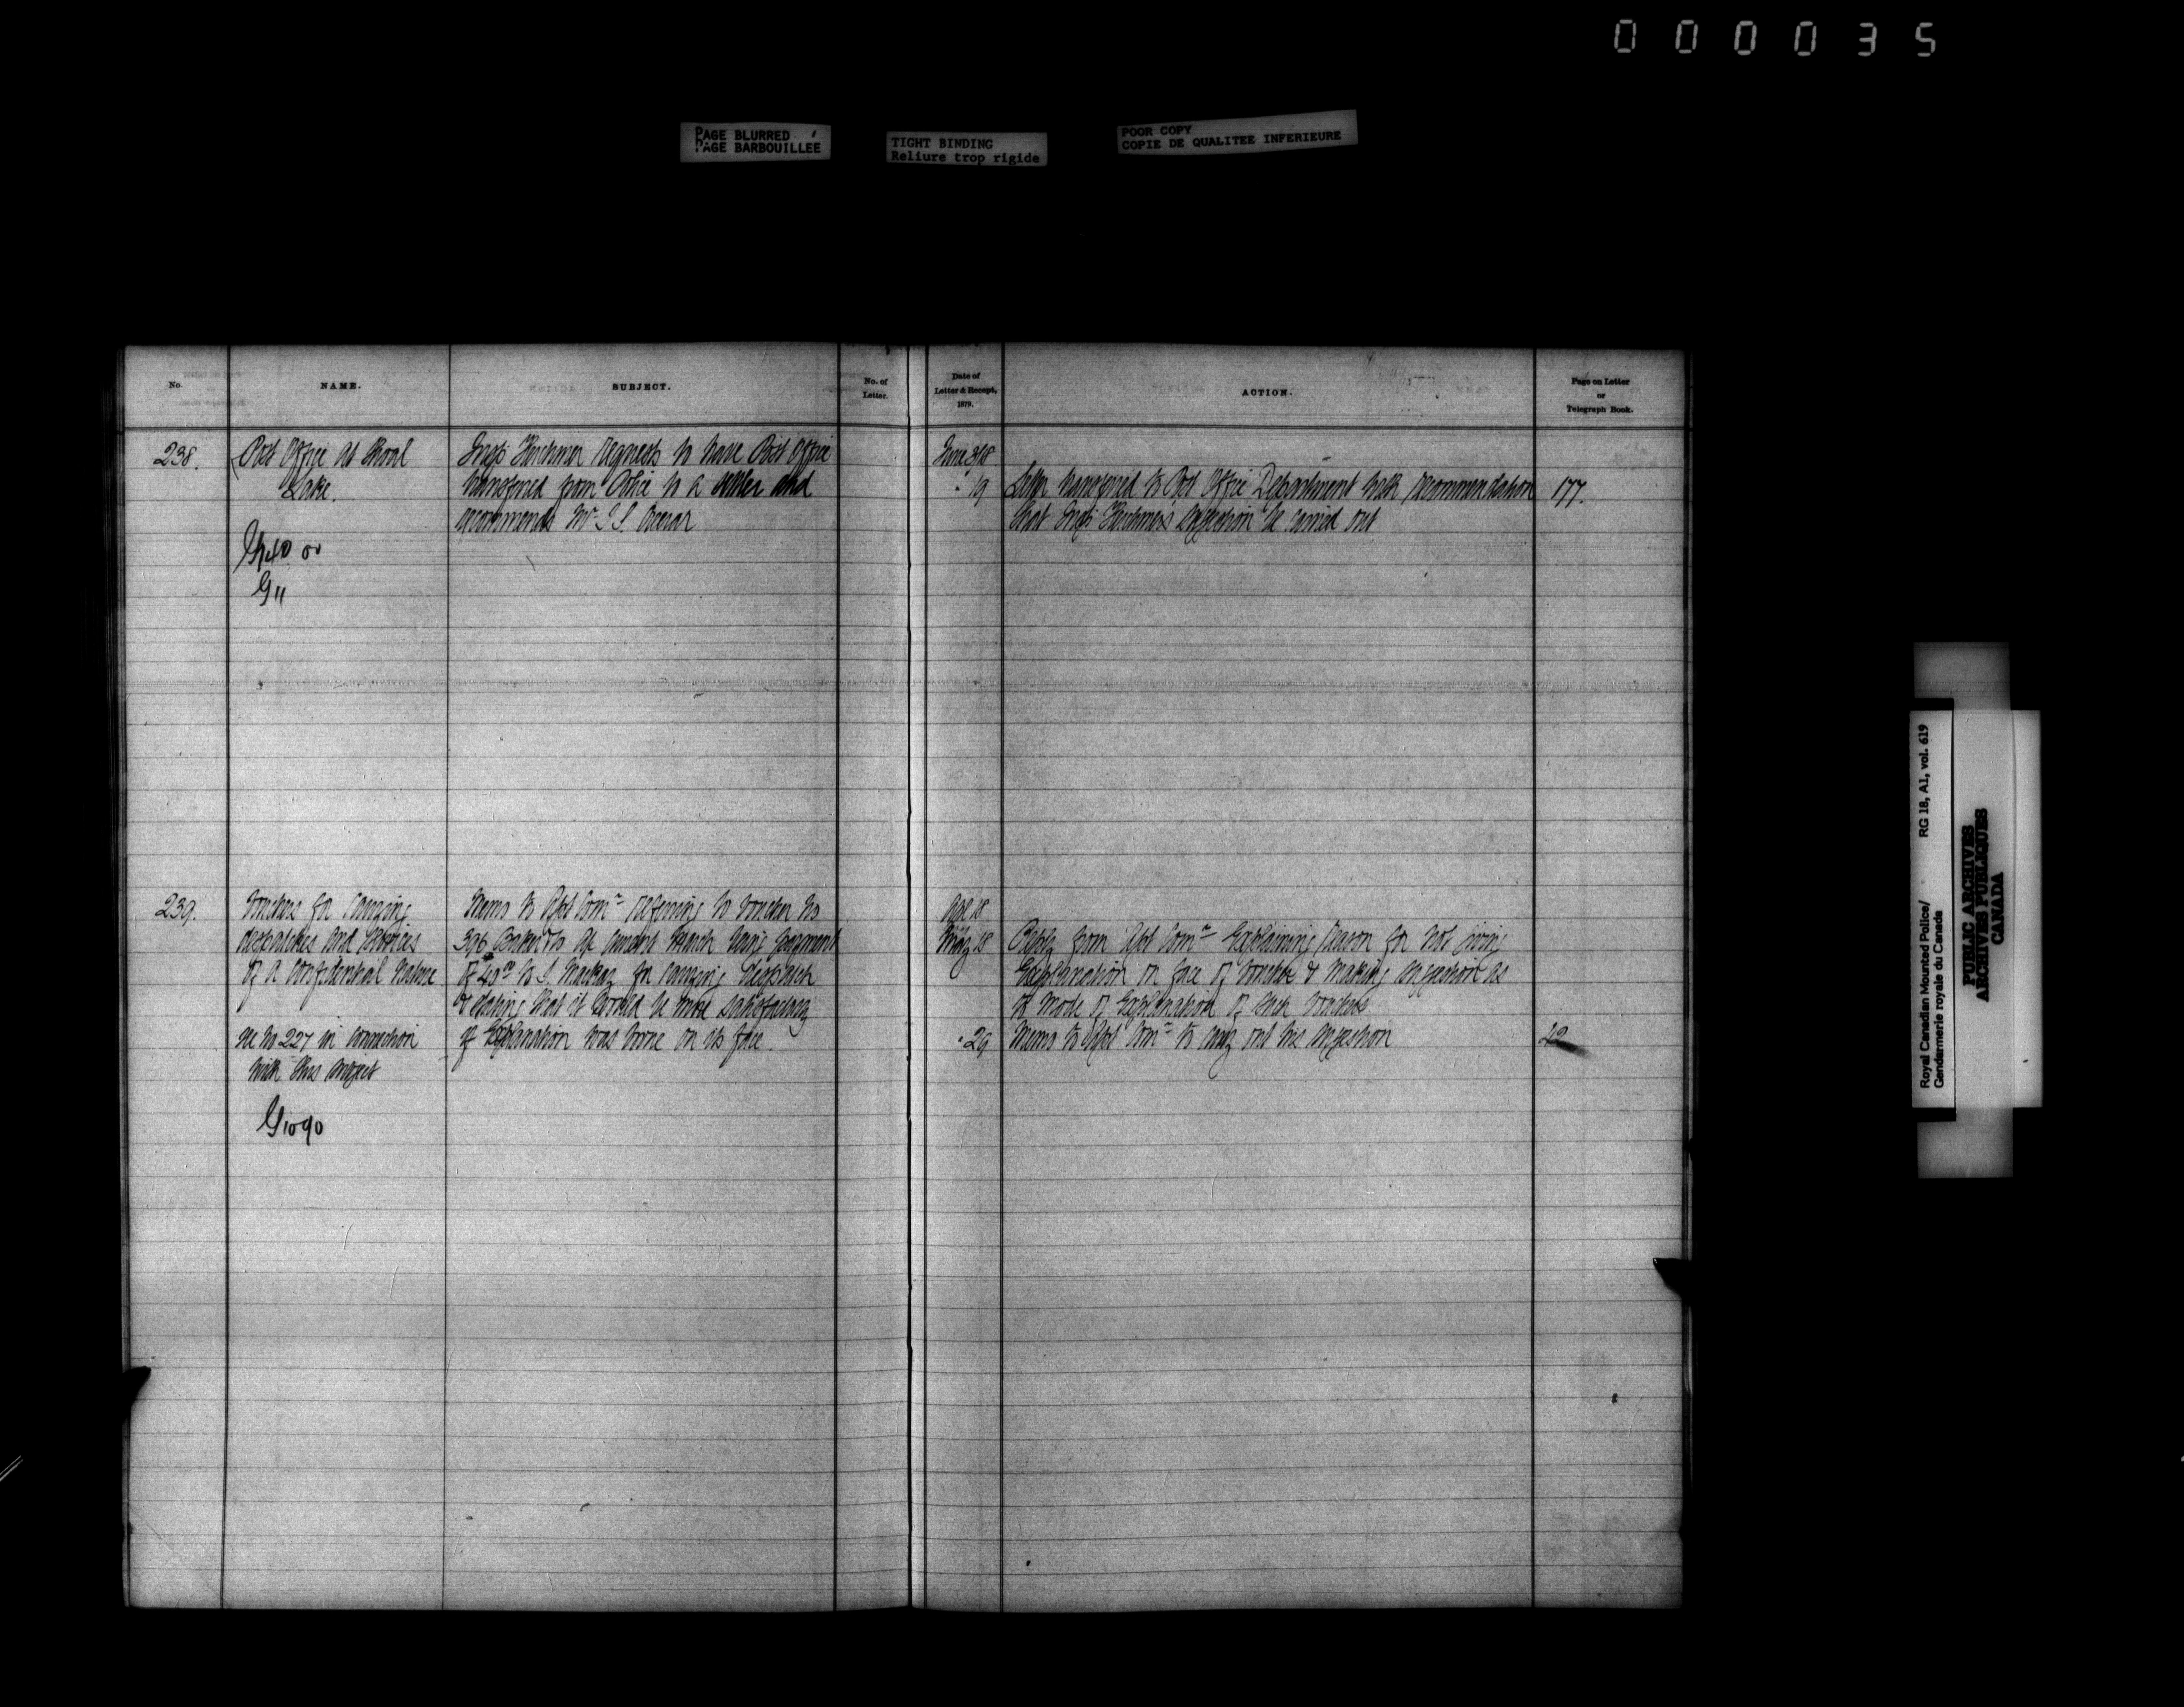 000035
PAGE BLURRED
PAGE BARBOUILLEE
TIGHT BINDING
Reliure trop rigide
POOR COPY
COPIE DE QUALITEE INFERIEURE
No.
NAME.
SUBJECT.
No. of
Letter.
Date of
Letter & Receipt,
1879.
ACTION.
Page on Letter
or
Telegraph Book.
238.
Post Office at Shoal
Lake.
G11
Insp. Herchmer requests to have Post Office
transferred from Police to a settler and
recommends Mr
June 3/18
" 19
Letter transferred to Post Office Department with recommendation
that Insp. Herchmer's suggestion be carried out
177.
239.
Vouchers for Carrying
despatches and Services
of a Confidential Nature
see No 227 in connection
with this subject
G1090
Memo to Asst Comr referring to voucher No
396 Baker & Co a/c current March being payment
of 40 to Mackay for carrying Despatch
& stating that it would be more satisfactory
if Explanation was borne on its face.
Apl 18
May 18
" 29
Reply from Asst Comr Explaining reason for not giving
Explanation on face of voucher & making suggestion as
to mode of Explanation of such vouchers
Memo to Asst Comr to carry out his suggestion
Royal Canadian Mounted Police/ RG 18, A1, vol. 619
Gendarmerie royale du Canada
PUBLIC ARCHIVES
ARCHIVES PUBLIQUES
CANADA